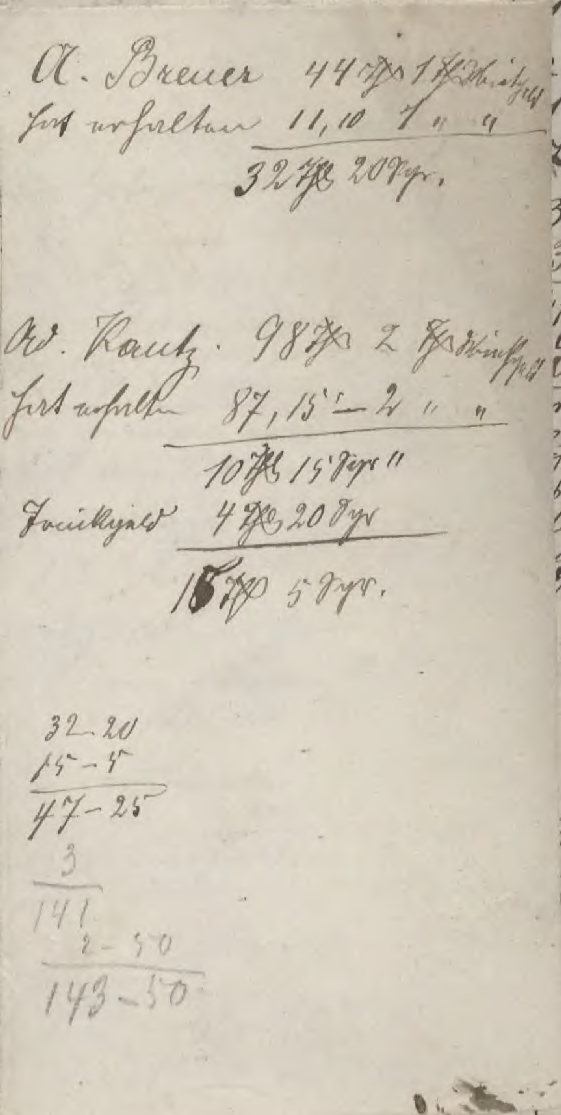 A. Breuer 44 Th 1 Th Miethgeld
hat erhalten 11,10 1 " "
32 Th 20 Sgr.
Ad. Kautz. 98 Th 2 Th Miethgeld
hat erhalten 87,15 – 2 " "
10 Th 15 Sgr "
Trinkgeld 4 Th 20 Sgr
15 Th 5 Sgr.
32–20
15–5
47–25
3
141
2–50
143–50